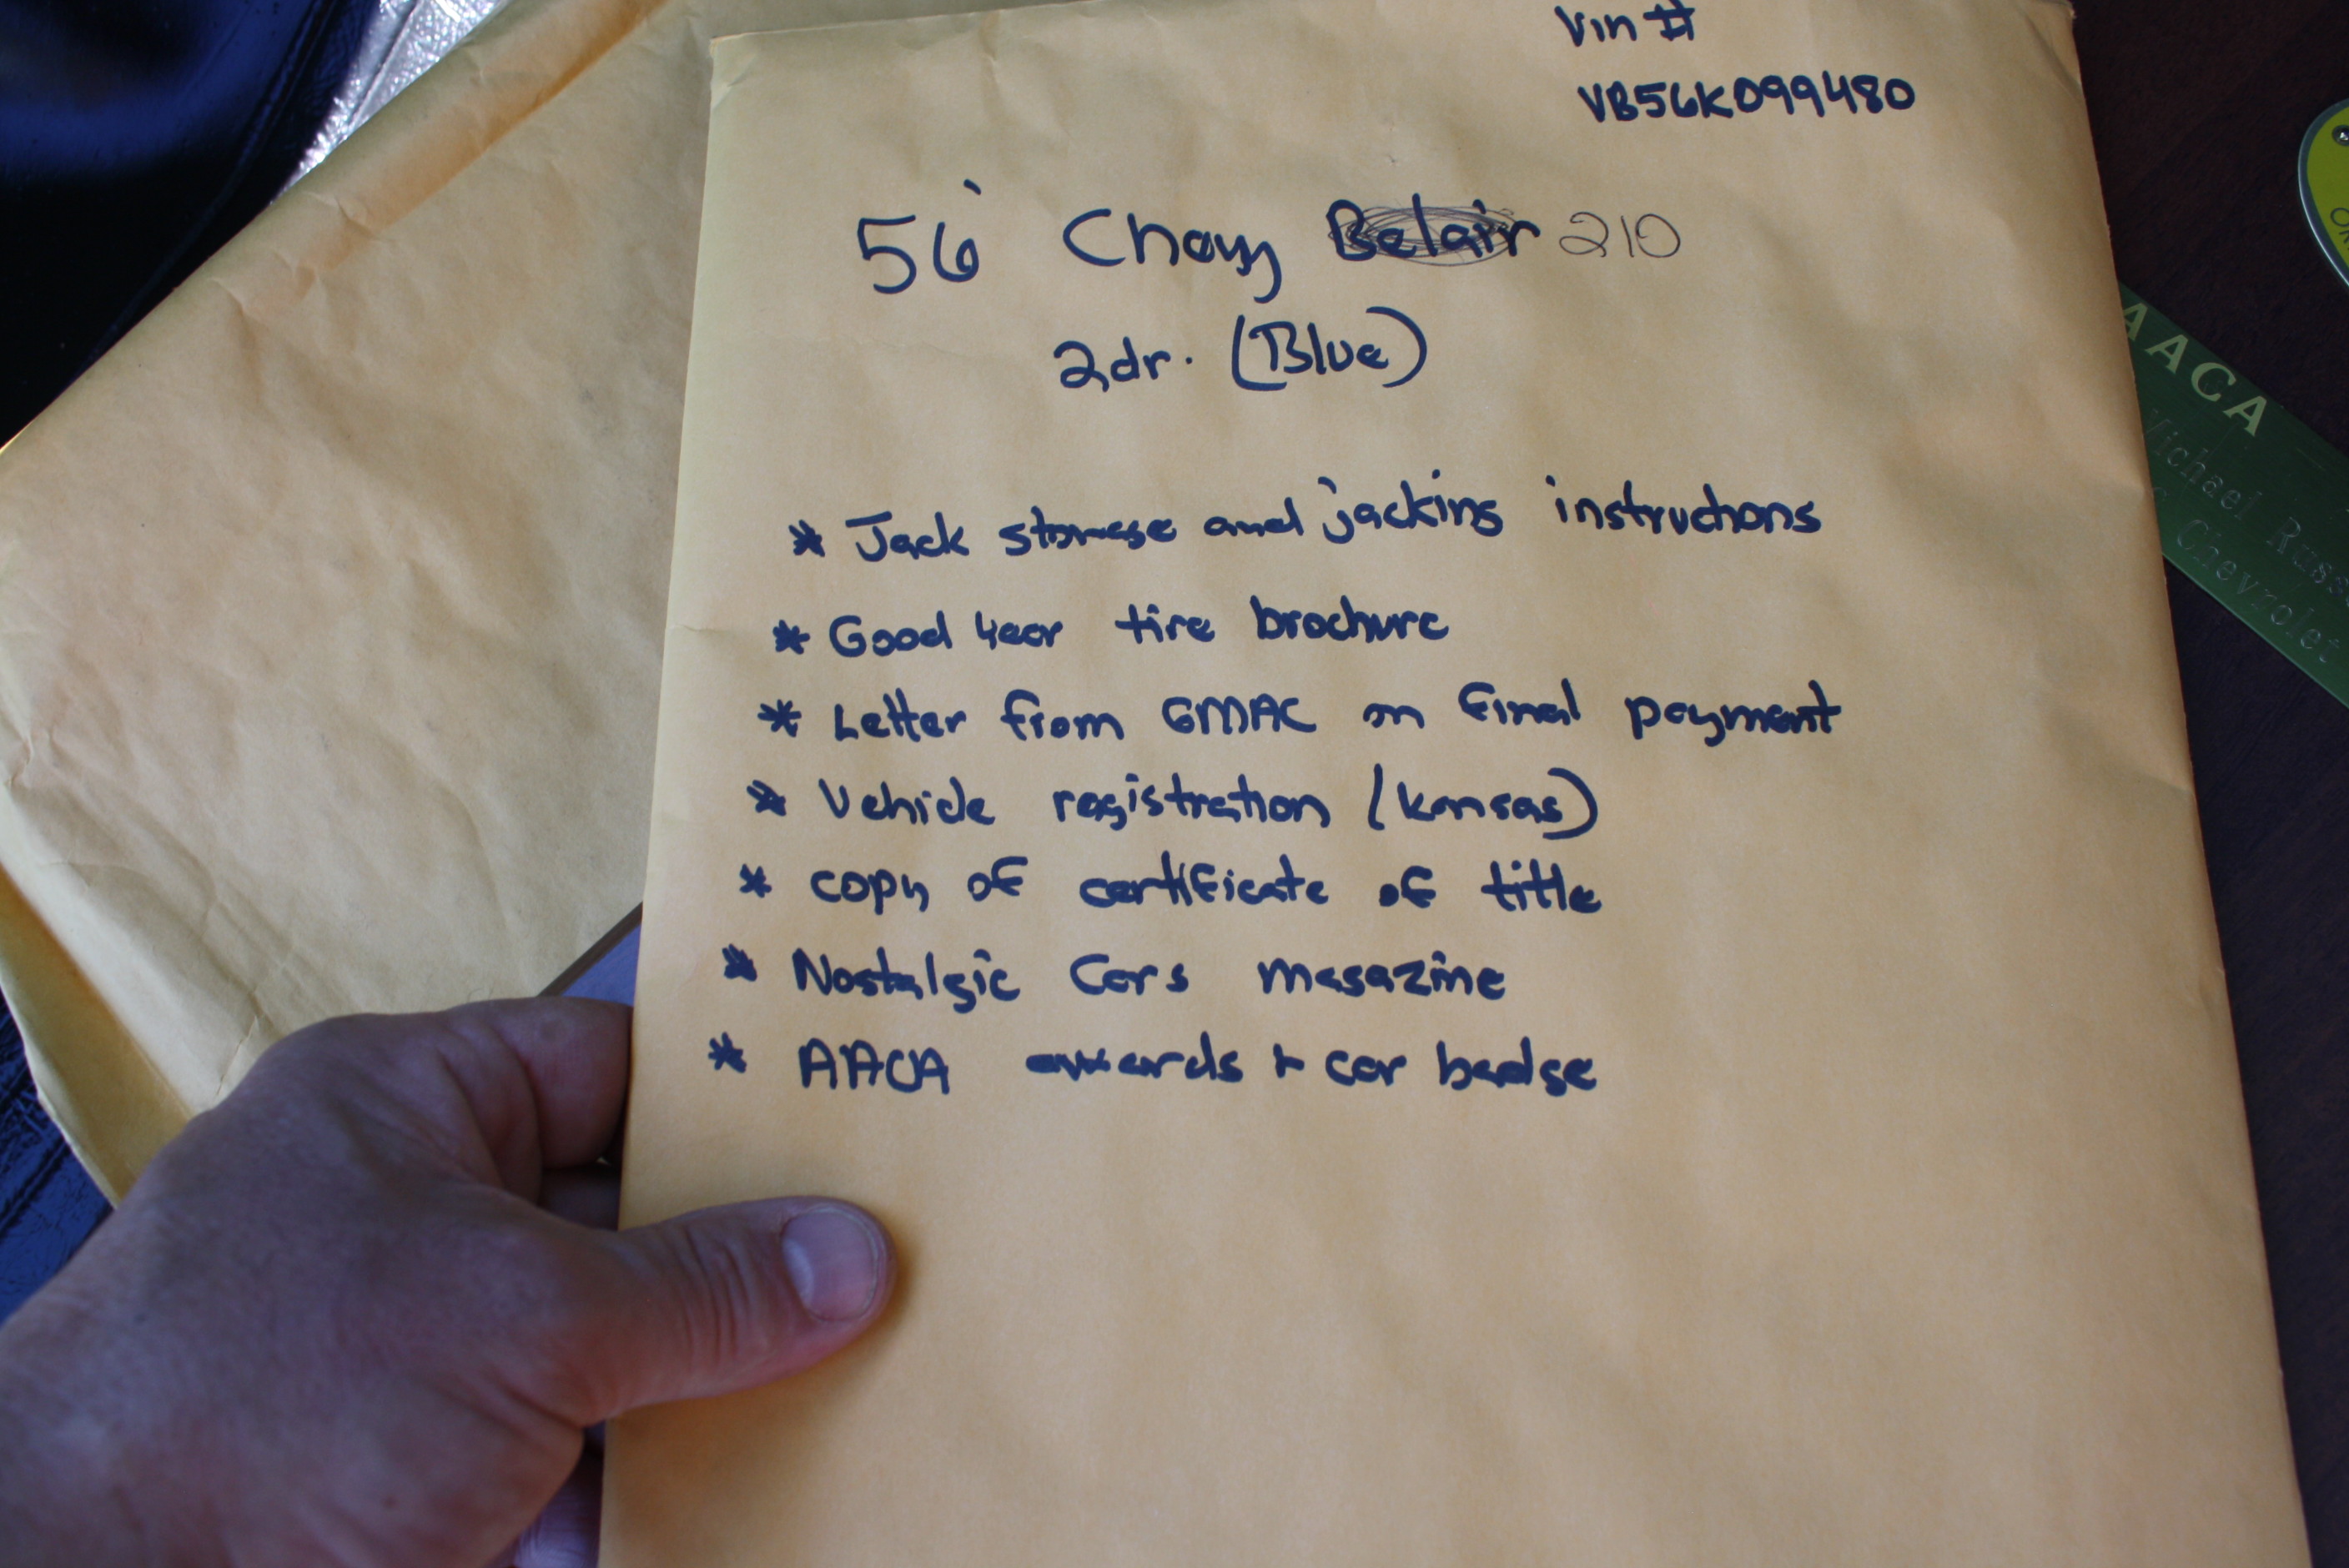 Vin #
VB56K099480
56' Chevy Belair 210
2dr. (Blue)
* Jack storage and jacking instructions
* Good Year tire brochure
* Letter from GMAC on final payment
* Vehicle registration (Kansas)
* copy of certificate of title
* Nostalgic Cars magazine
* AACA awards + car badge
AACA
Michael Russ
Chevrolet